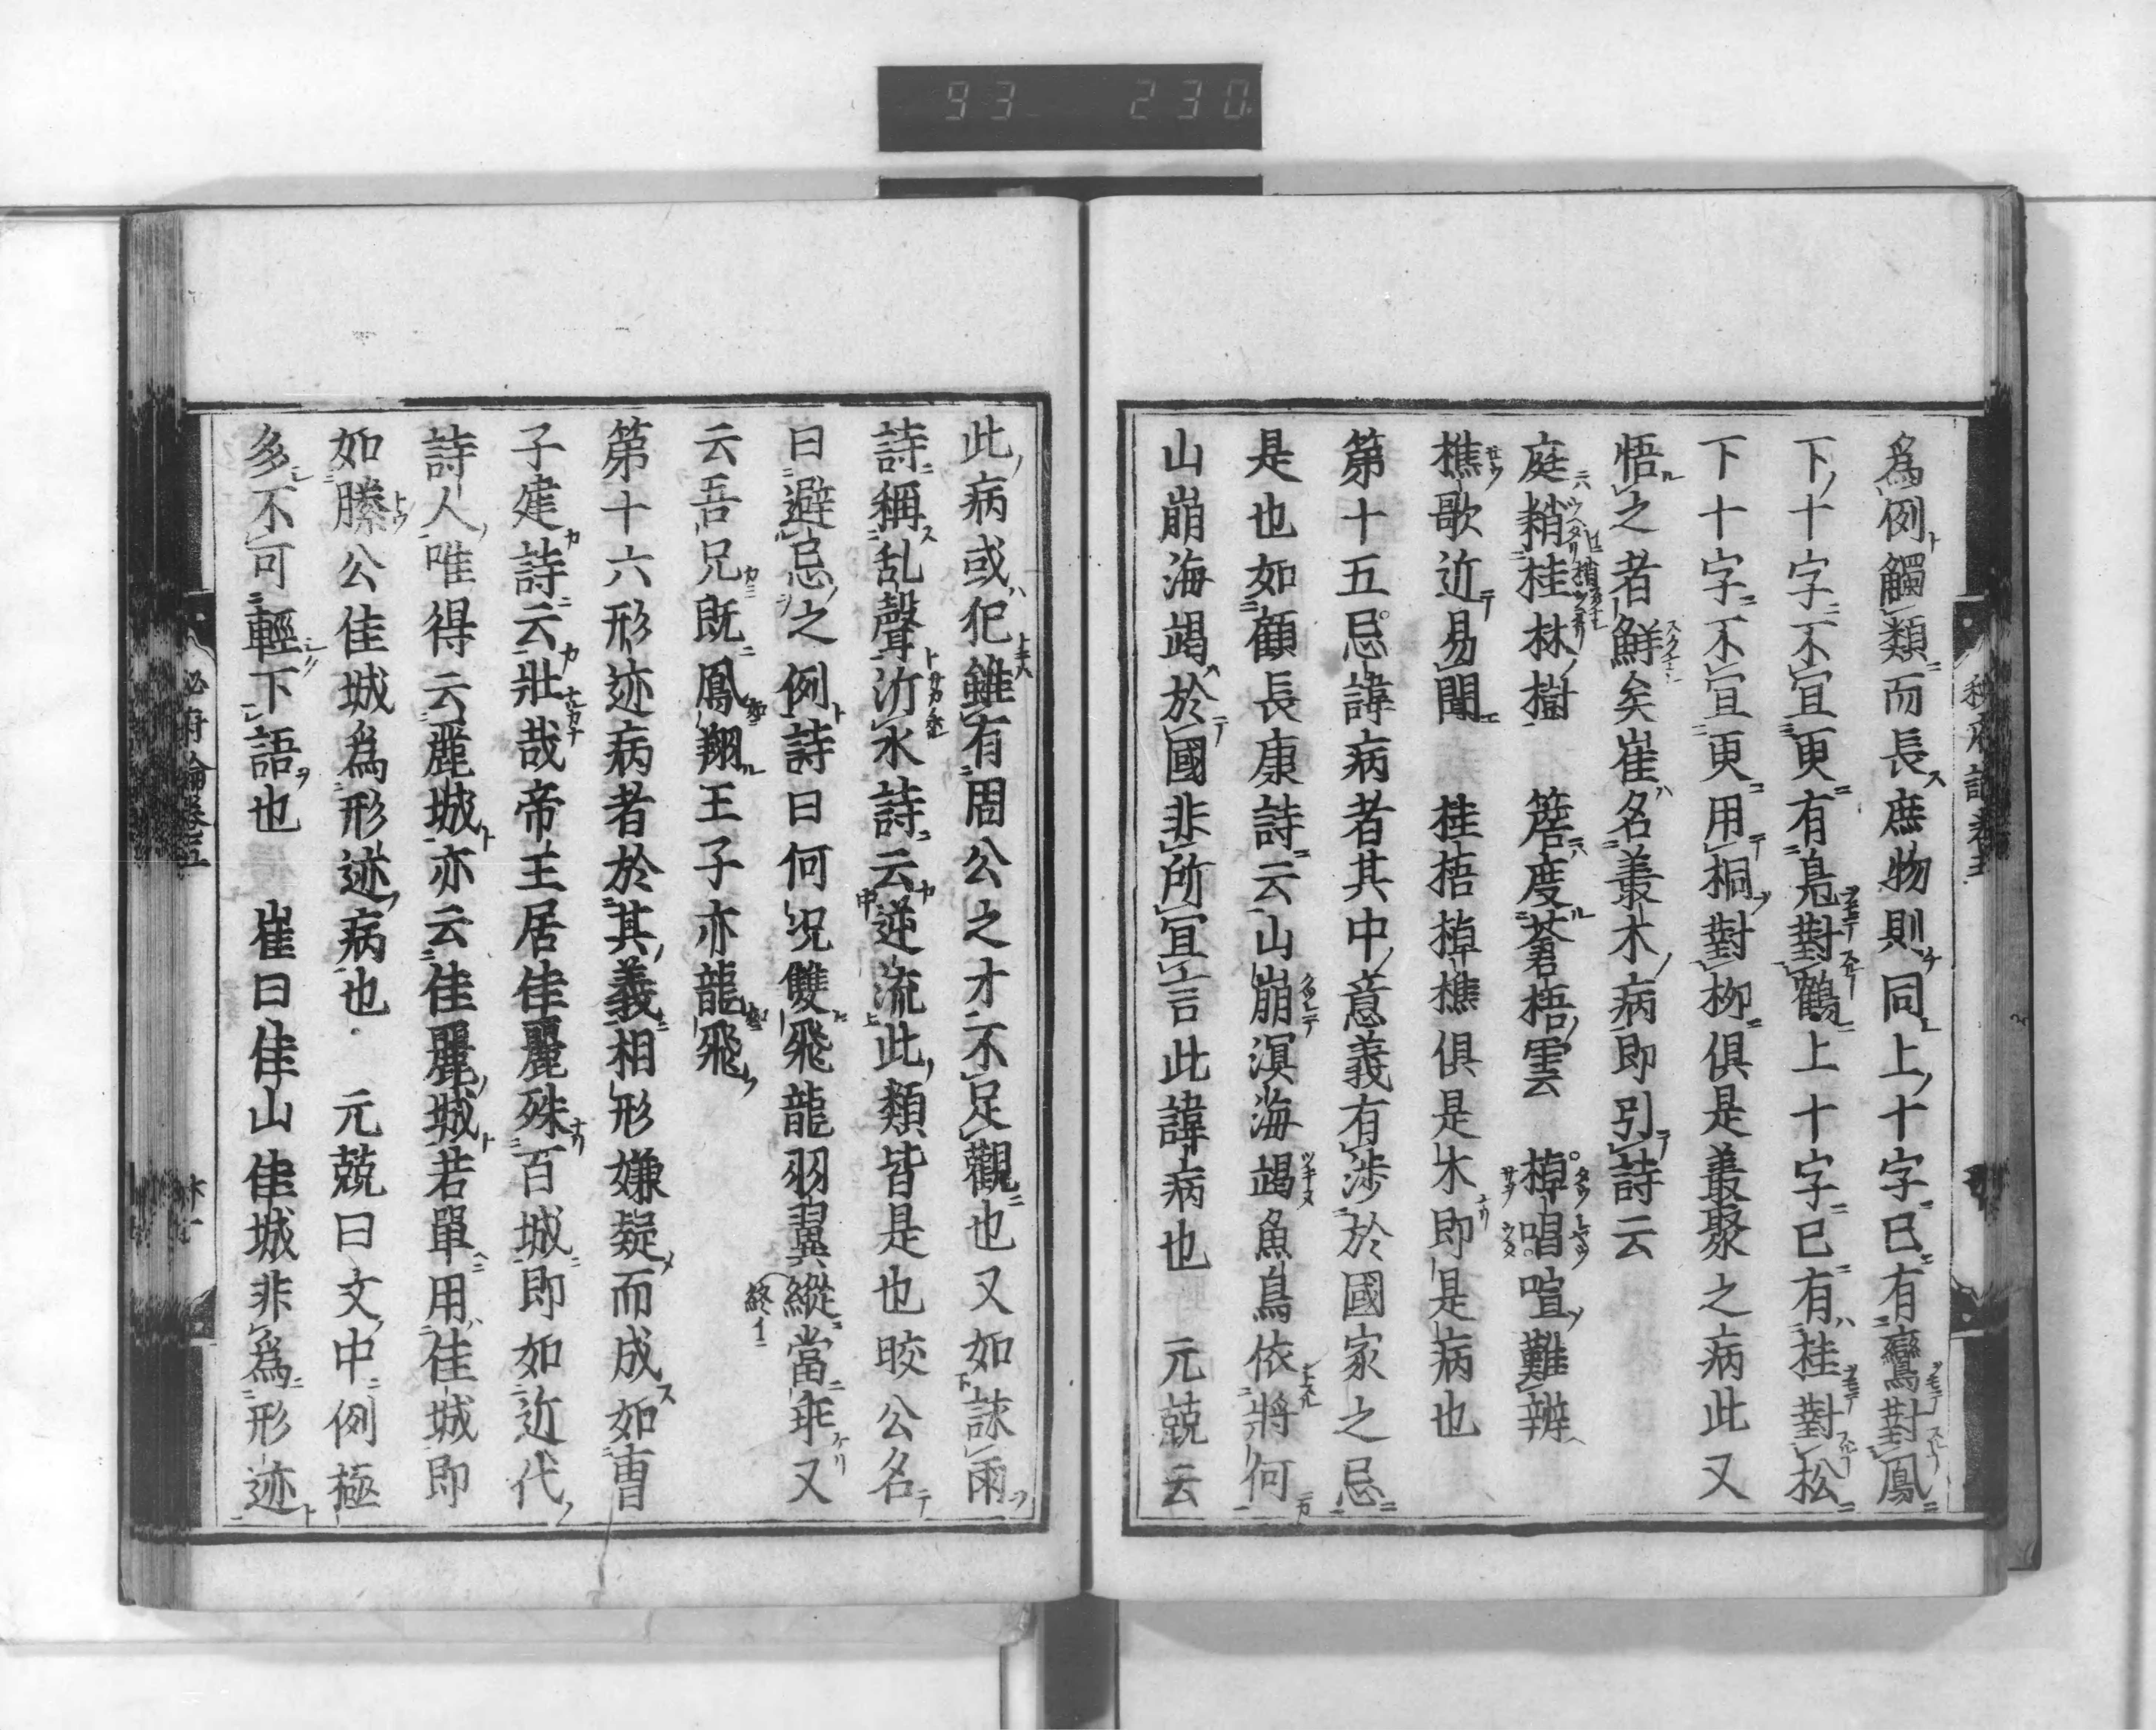 93 230
爲例觸類而長庶物則同上十字已有鸞對鳳
下十字不宜更有鳧對鶴上十字已有桂對松
下十字不宜更用桐對柳俱是叢聚之病此又
悟之者鮮矣崔名叢木病即引詩云
庭梢桂林樹 簷度蒼梧雲 棹唱喧難辨
樵歌近易聞 桂梧棹樵俱是木即是病也
第十五忌諱病者其中意義有涉於國家之忌
是也如顧長康詩云山崩溟海竭魚鳥依將何
山崩海竭於國非所宜言此諱病也 元兢云
此病或犯雖有周公之才不足觀也又如詠雨
詩稱乱聲泝水詩云逆流此類皆是也皎公名
曰避忌之例詩曰何況雙飛龍羽翼縱當乖又
云吾兄既鳳翔王子亦龍飛
第十六形迹病者於其義相形嫌疑而成如曹
子建詩云壯哉帝王居佳麗殊百城即如近代
詩人唯得云麗城亦云佳麗城若單用佳城即
如滕公佳城爲形迹病也 元兢曰文中例極
多不可輕下語也 崔曰佳山佳城非爲形迹